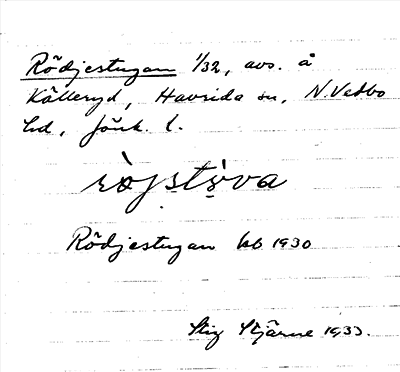 Rödjestugan 1/32, avs. å
Källeryd, Haurida sn, N. Vedbo
hd, Jönk. l.
ròjstùva
Rödjestugan kb 1930
Stig Stjärne 1933.